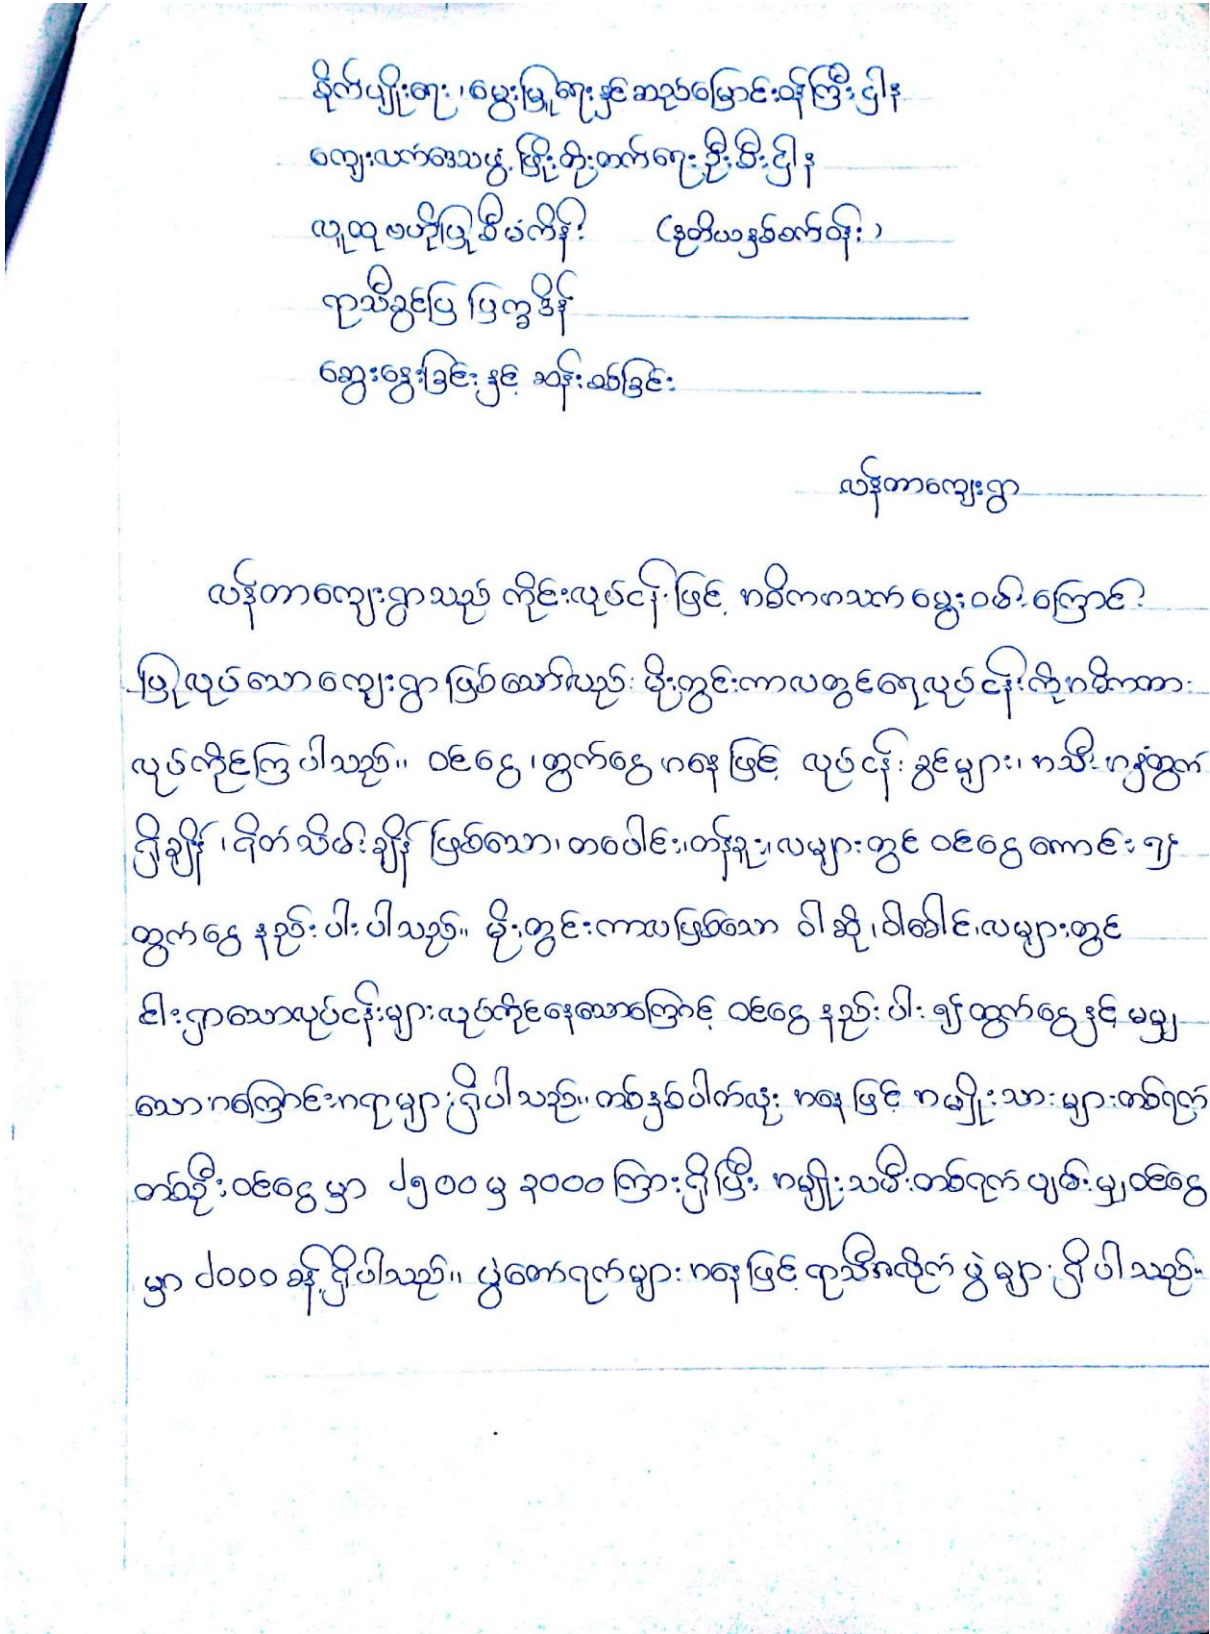 စိုက်ပျိုးရေး၊ မွေးမြူရေးနှင့်ဆည်မြောင်းဝန်ကြီးဌါန
ကျေးလက်ဒေသဖွံ့ဖြိုးတိုးတက်ရေးဦးစီးဌါန
လူထုဗဟိုပြုစီမံကိန်း (ဒုတိယနှစ်စက်ဝန်း)
ရာသီခွင်ပြ ပြက္ခဒိန်
ဆွေးနွေးခြင်းနှင့် ဆန်းစစ်ခြင်း
လန်တာကျေးရွာ
လန်တာကျေးရွာသည် ကိုင်းလုပ်ငန်းဖြင့် အဓိကအသက်မွေးဝမ်းကြောင်း
ပြုလုပ်သောကျေးရွာဖြစ်သော်လည်း မိုးတွင်းကာလတွင်ရေလုပ်ငန်းကိုအဓိကထား
လုပ်ကိုင်ကြပါသည်။ ဝင်ငွေ၊ ထွက်ငွေအနေဖြင့် လုပ်ငန်းခွင်များ၊ အသီးအနှံထွက်
ရှိချိန်၊ ရိတ်သိမ်းချိန် ဖြစ်သော၊ တပေါင်း၊ တန်ခူး၊ လများတွင် ဝင်ငွေကောင်း၍
ထွက်ငွေ နည်းပါးပါသည်။ မိုးတွင်းကာလဖြစ်သော ဝါဆို၊ ဝါခေါင်၊ လများတွင်
ငါးရှာသောလုပ်ငန်းများလုပ်ကိုင်နေသောကြောင့် ဝင်ငွေနည်းပါး၍ ထွက်ငွေနှင့် မမျှ
သောအကြောင်းအရာများရှိပါသည်။ တစ်နှစ်ပါတ်လုံး အနေဖြင့် အမျိုးသားများတစ်ရက်
တစ်ဦးဝင်ငွေမှာ ၂၅၀၀ မှ ၃၀၀၀ ကြားရှိပြီး အမျိုးသမီးတစ်ရက် ပျမ်းမျှဝင်ငွေ
မှာ ၂၀၀၀ ခန့်ရှိပါသည်။ ပွဲတော်ရက်များအနေဖြင့် ရာသီအလိုက် ပွဲများရှိပါသည်။